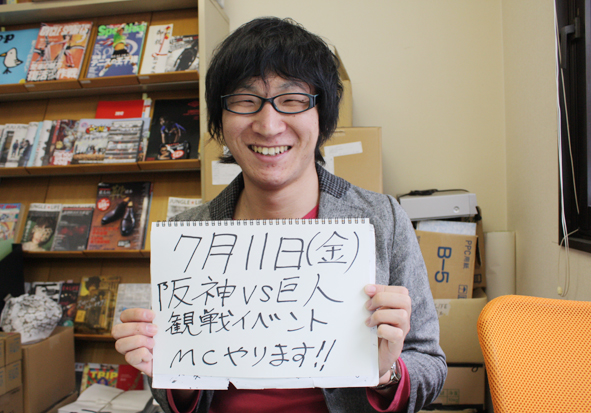 7月11日(金)
阪神vs巨人
観戦イベント
MCやります!!
B-5
TPIP